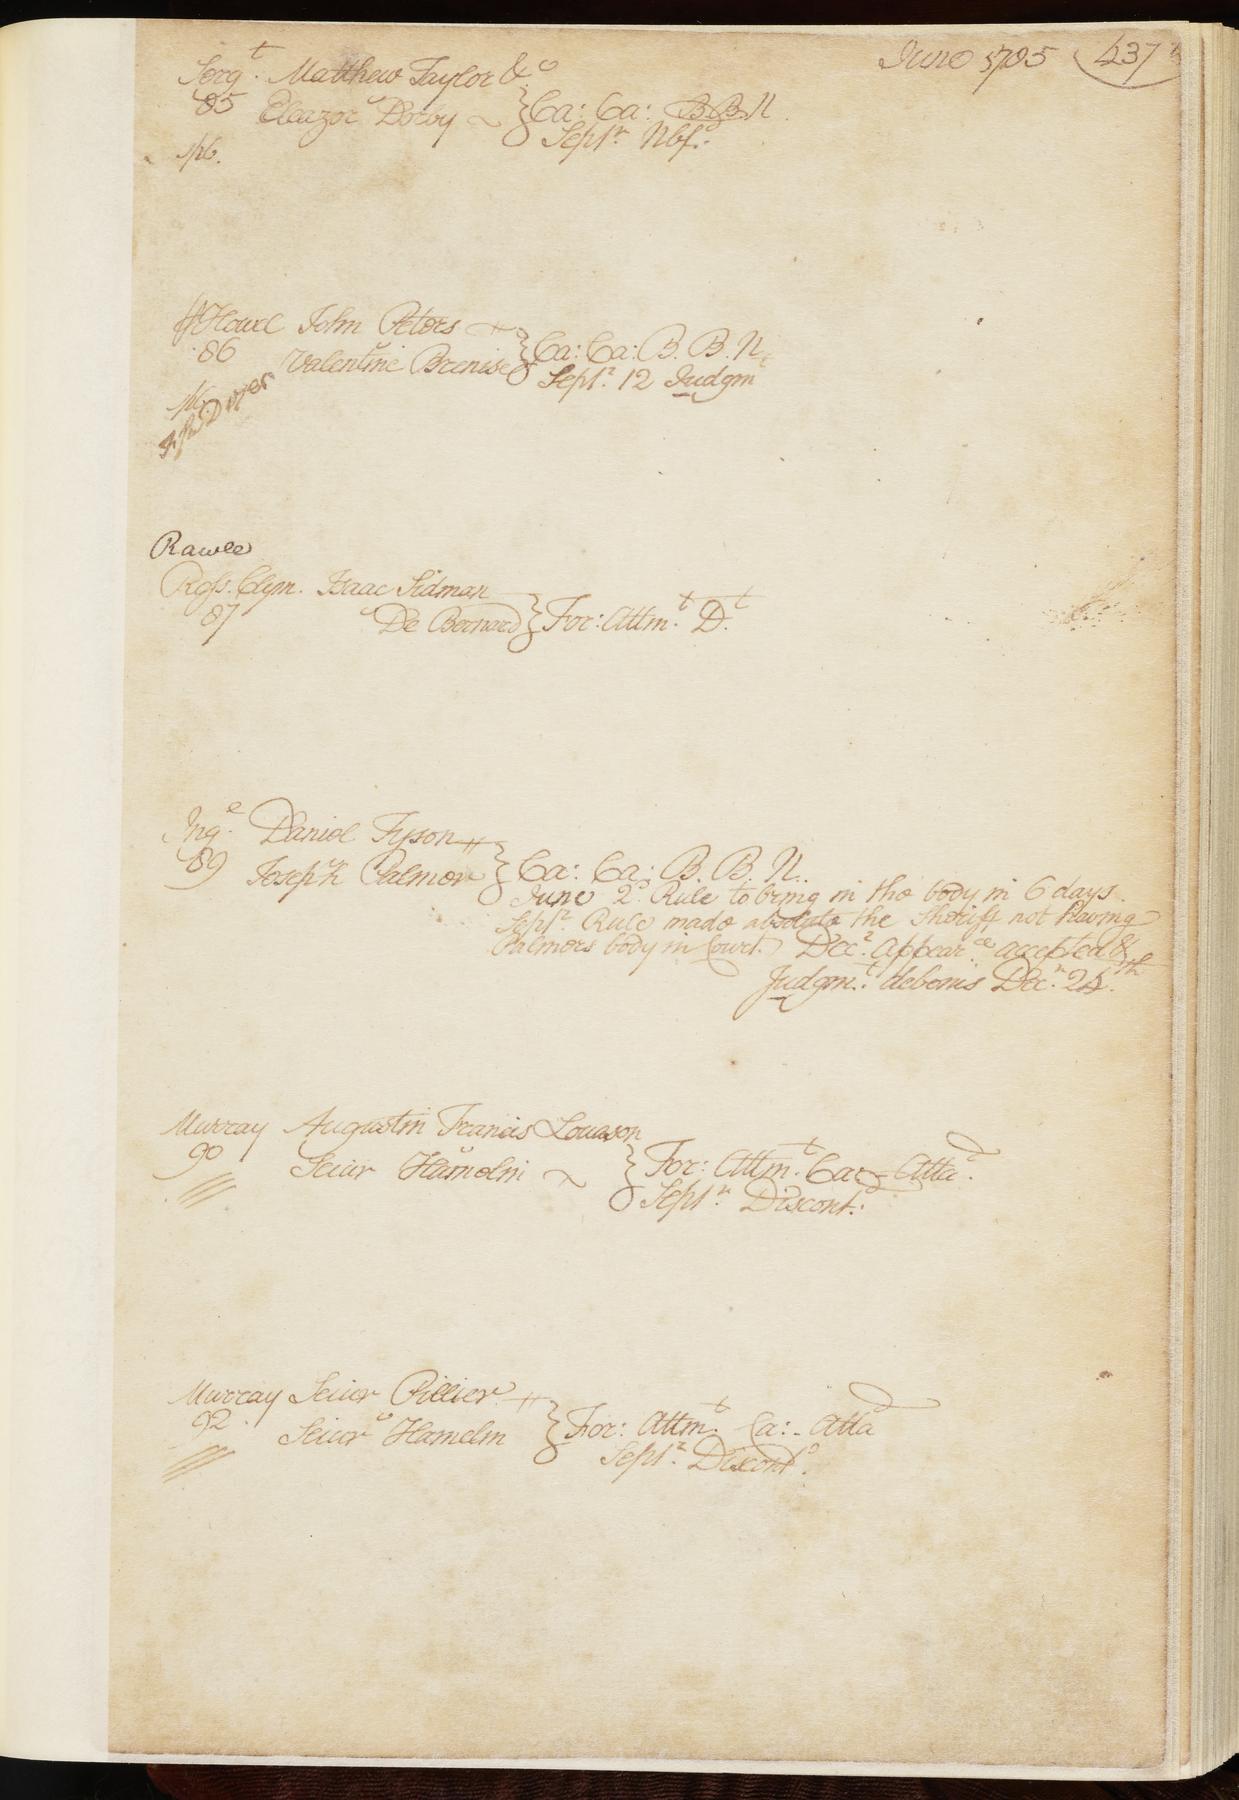 June 1785 437
Serg.t Matthew Taylor & Co
85 Eleazor Dorby } Ca: Ca: B B N.
Sept.r Nbf:
Howel John Peters
86 Valentine Brenise } Ca: Ca: B. B. N.
Sept.r 12 Judgm
Rawle
Ross. Clym. Isaac Sidman
87 De Bernard } For: Attm.t D.t
Ing.e Daniel Tyson
89 Joseph Palmer } Ca: Ca: B. B. N.
June 2.d Rule to bring in the body in 6 days.
Sept.r Rule made absolute the Sheriff not having
Palmers body in Court. Dec.r Appear.ce accepted &
Judgm.t debonis Dec.r 24.th
Murray Augustin Francis
90 Seiur Hamelin } For: Attm.t Ca: Atta.d
Sept.r Discont.d
Murray Seiur Pillier
92 Seiur Hamelin } For: Attm.t Ca: - Atta.d
Sept.r Discont.d